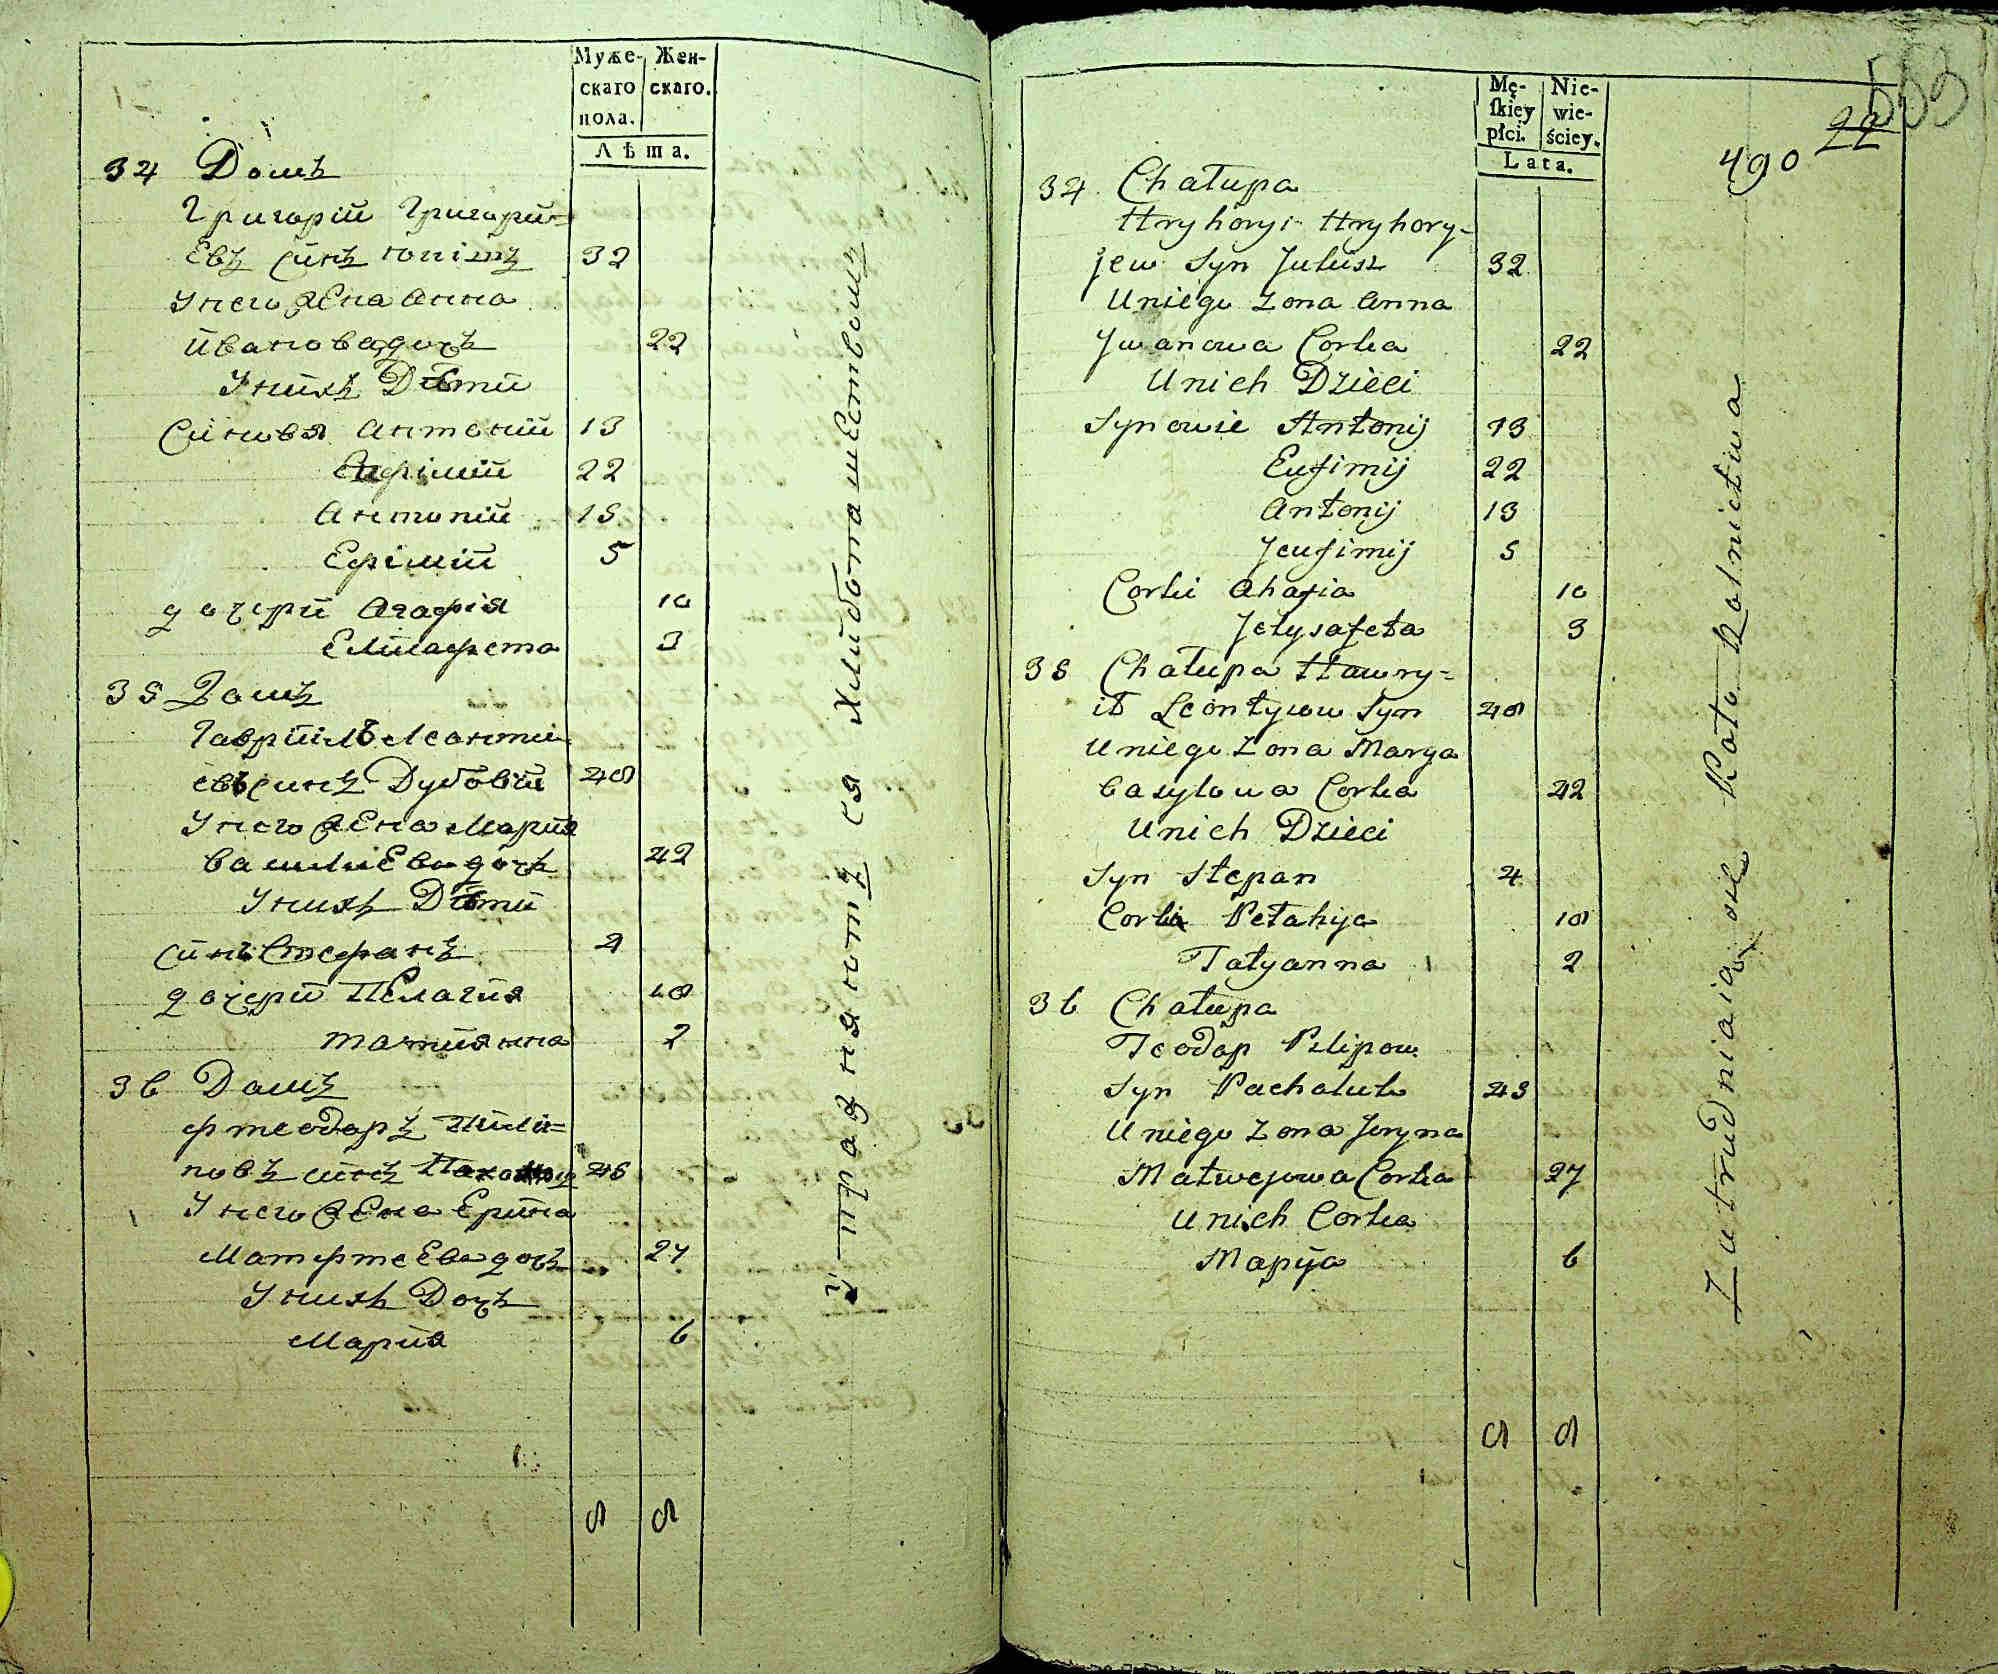 Муже-
скаго
пола.
Жен-
скаго.
Лѣта.
34 Домъ
Григорій Григорій=
Евъ Синъ 32
Унего жена Анна
ивановадочь 22
Унихъ Дѣти
Синовя Антоній 13
22
Антоній 15
Ефімій 5
дочери Агафія 10
Елисафета 3
35 Домъ
Гавриілъ Леонти
евъ синъ Дубовій 48
Унего жена Мария
василиЕва дочь 42
Унихъ Дѣти
синъ Стефанъ 4
дочери Пелагия 18
татиянна 2
36 Домъ
фтеодаръ Пили=
повъ синъ 46
Унего жена Ерина
Матфтеева дочь 27
Унихъ Дочь
Мария 6
8 8
упразняютъ ся хлиботашествомъ
Mę-
skiey
płci.
Nie-
wie-
ściey.
Lata.
553
22
490
34 Chałupa
Hryhoryi Hryhory-
jew Syn 32
Uniego Zona Anna
Jwanowa Corka 22
Unich Dzieci
Synowie Antonij 13
Eufimij 22
Antonij 13
Jeufimij 5
Corki Ahafia 10
Jelysafeta 3
35 Chałupa Hawry=
ił Leontyiow Syn 48
Uniego Zona Marya
Basylowa Corka 42
Unich Dzieci
Syn Stepan 4
Corki Pełahija 18
Tatyanna 2
36 Chałupa
Теодор Pylipow
Syn 43
Uniego Zona Jeryna
Matwejowa Corka 27
Unich Corka
Марija 6
8 8
Zatrudniaią sie Rolnictwa